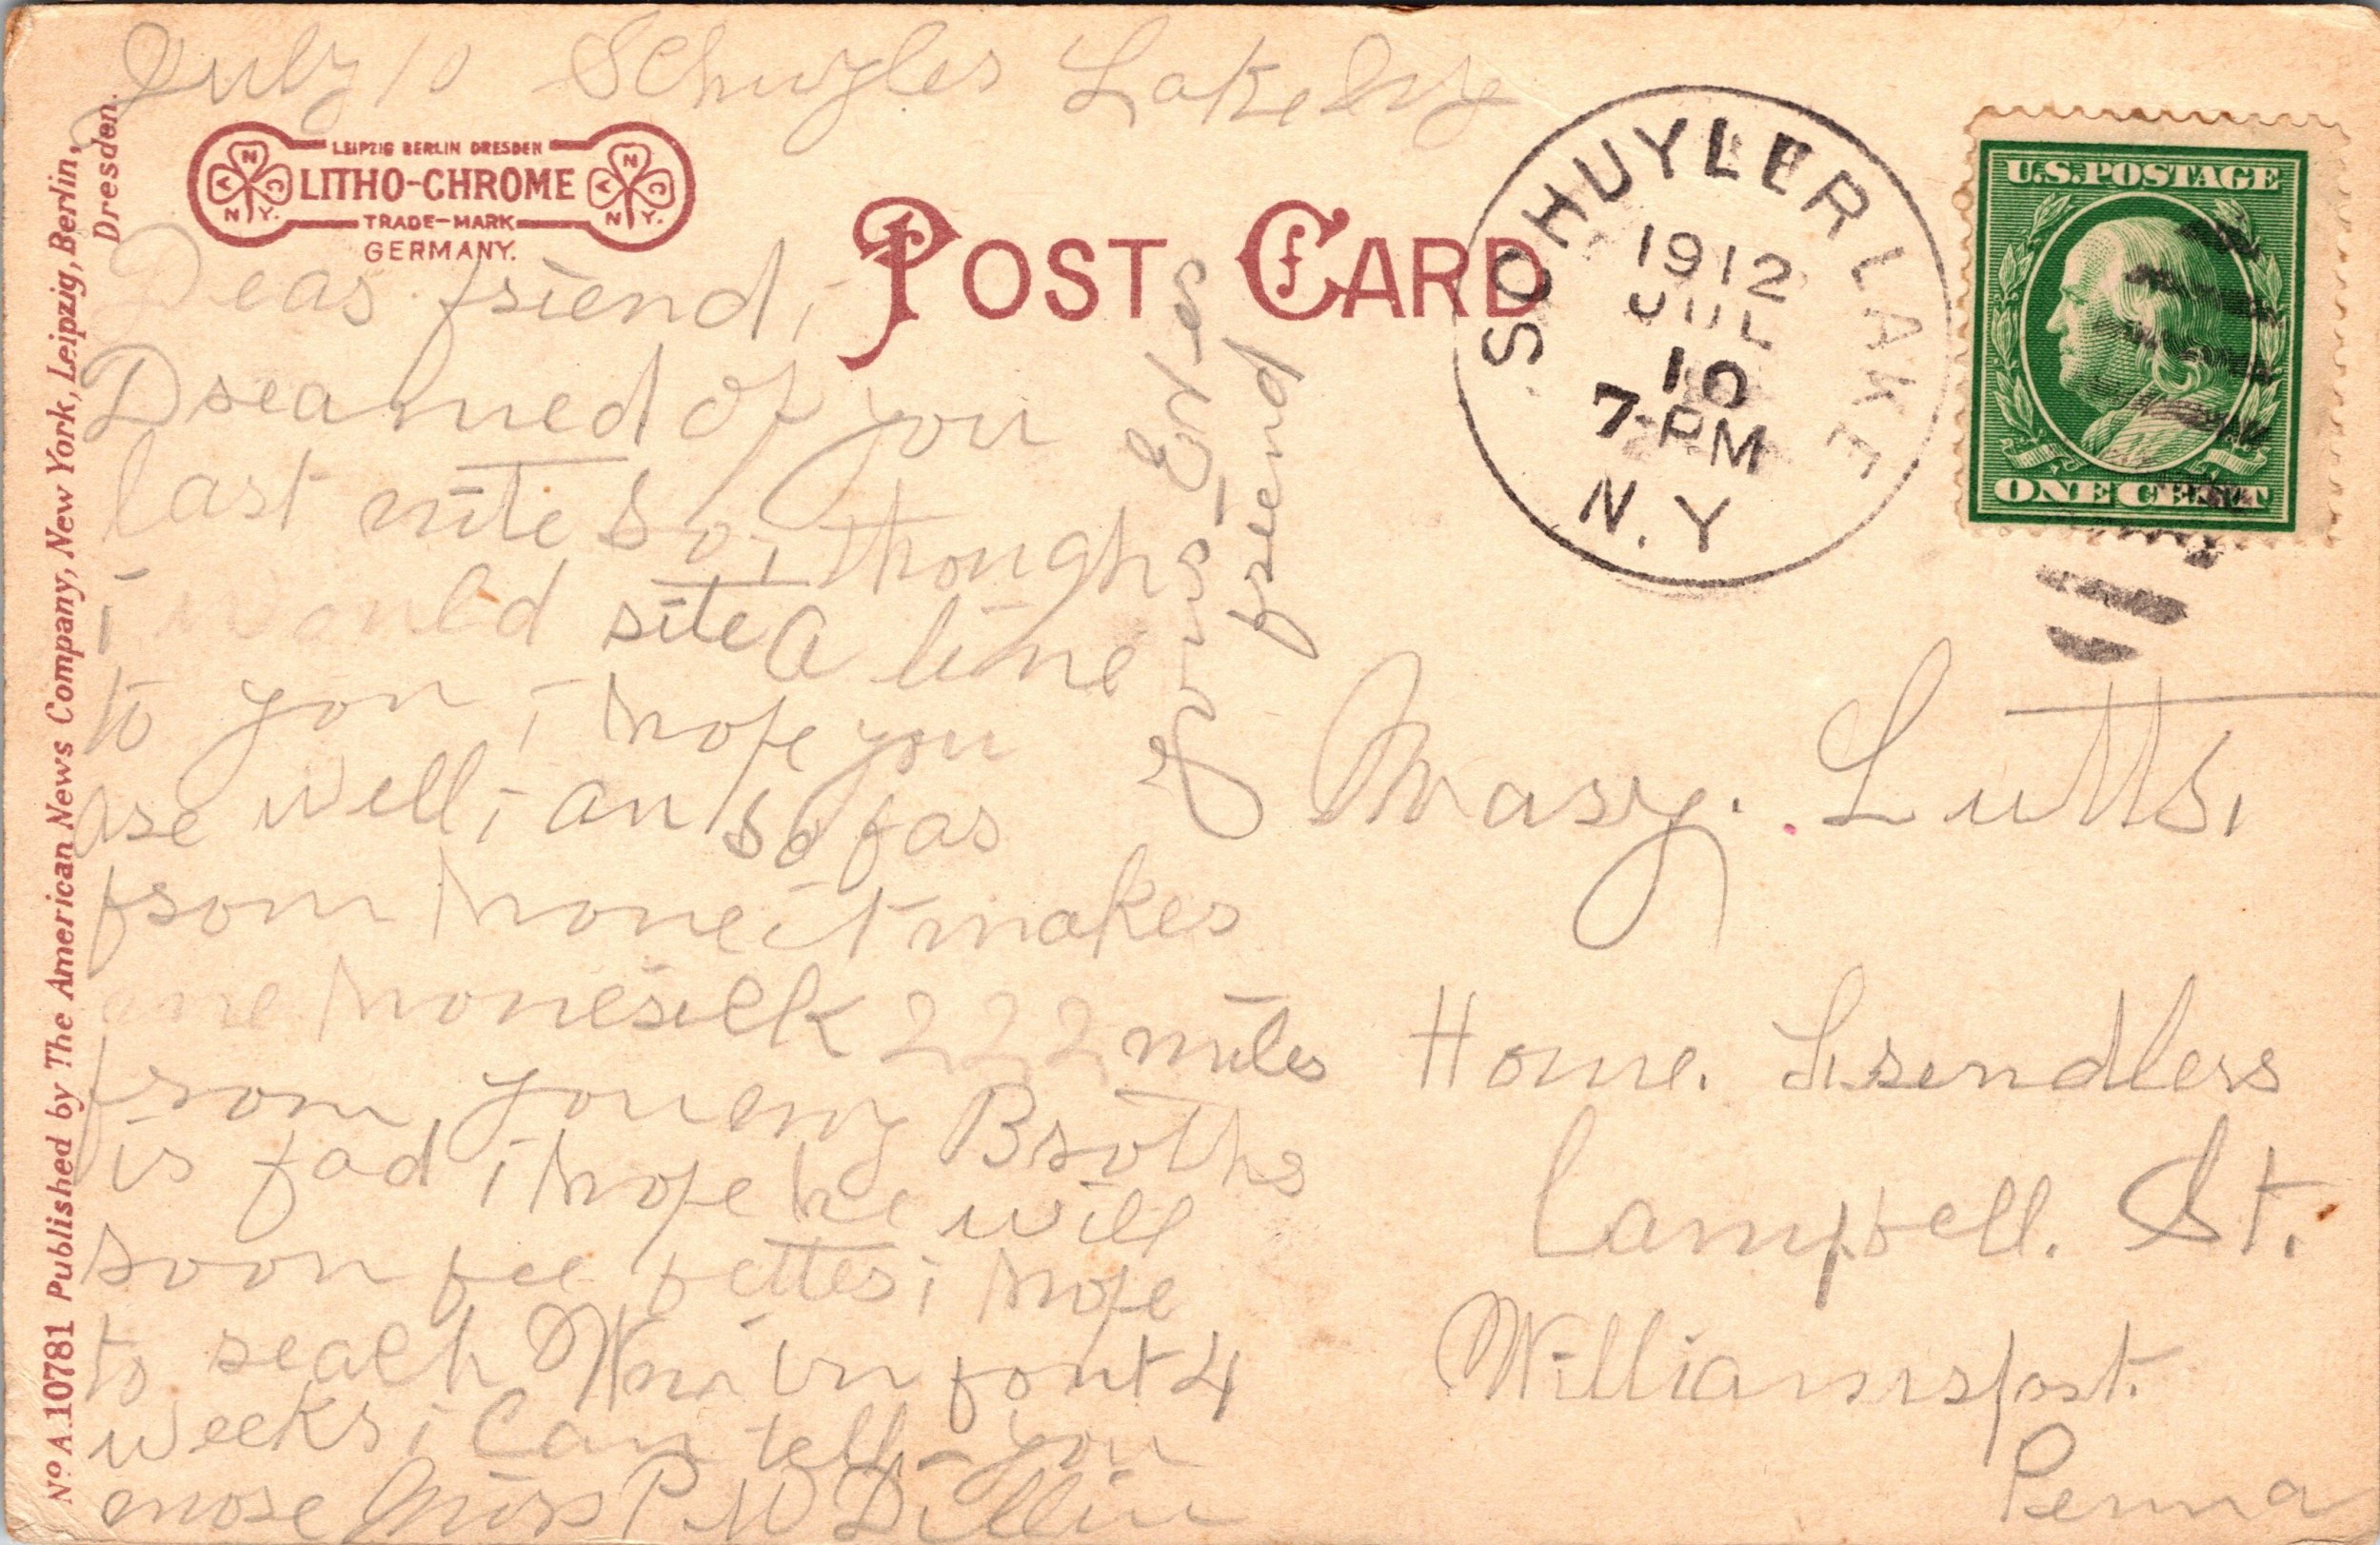 July 10 Schuyler Lake NY
LEIPZIG BERLIN DRESDEN
LITHO-CHROME
TRADE-MARK
GERMANY.
N Y C
N Y.
N Y C
N Y.
POST CARD
SCHUYLER LAKE
1912
JUL
10
7-PM
N.Y
U.S. POSTAGE
ONE CENT
Dear friend i
Dreamed of you
last nite so i though
i would rite a line
to you i hope you
are well i am so far
from home it makes
me homesick 222 miles
from you my Brother
is bad i hope he will
soon bee better i hope
to reach in bout 4
weeks i can tell you
more Miss P W Dillin
your Ever
friend
Mary. Lutts.
Home. Friendless
Campbell. St.
Williamsport.
Penna
No A.10781 Published by The American News Company, New York, Leipzig, Berlin,
Dresden.